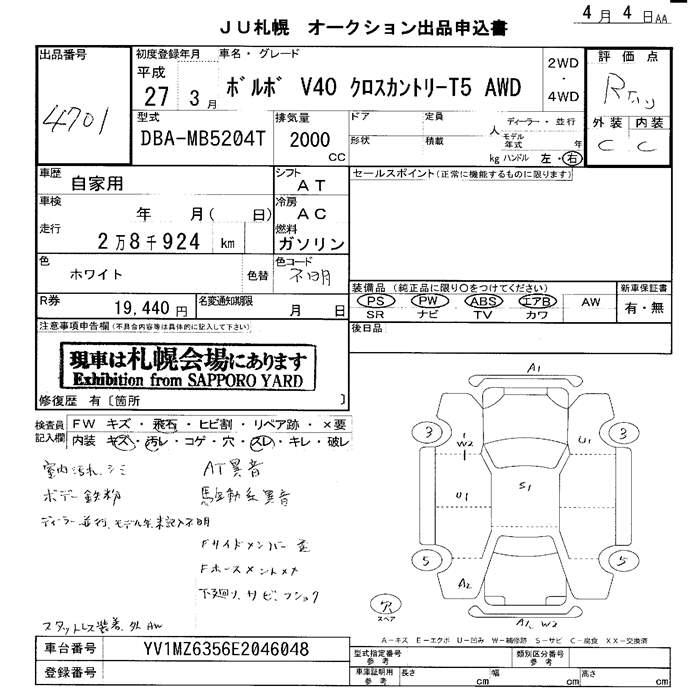 4月4日AA
JU札幌 オークション出品申込書
出品番号 初度登録年月 車名・グレード 評価点
平成 2WD
27 3月 ボルボ V40 クロスカントリーT5 AWD ・
4701 4WD R
型式 排気量 ドア 定員 ディーラー・並行 外装 内装
DBA-MB5204T 2000 人 モデル年式 年 C C
CC 形状 積載 kg ハンドル 左・右
車歴 シフト セールスポイント(正常に機能するものに限ります)
自家用 AT
車検 冷房
年 月( 日) AC
走行 燃料
2万8千924 km ガソリン
色 色コード
ホワイト 色替 不明 装備品(純正品に限り○をつけてください) 新車保証書
R券 名変通知期限 PS PW ABS エアB AW 有・無
19,440円 月 日 SR ナビ TV カワ
注意事項申告欄(不具合内容等は具体的に記入して下さい) 後日品
現車は札幌会場にあります
Exhibition from SAPPORO YARD
修復歴 有〔箇所 〕
A1
検査員 FW キズ・飛石・ヒビ割・リペア跡・×要
記入欄 内装 キズ・汚レ・コゲ・穴・スレ・キレ・破レ
3 W2 U1 3
室内汚れ、シミ AT異音
ボデー鉄粉 駆動系異音
U1 S1
ディーラー並行、モデル年未記入不明
Fサイドメンバー歪
Fホースメントメナ
5 A2 5
下廻り、サビ、フショク
穴
スペア
A1、W2
スタットレス装着、外AW
A-キズ E-エクボ U-凹み W-補修跡 S-サビ C-腐食 XX-交換済
車台番号 YV1MZ6356E2046048
型式指定番号 参考 類別区分番号 参考
登録番号 車庫証明用 参考 長さ cm 幅 cm 高さ cm